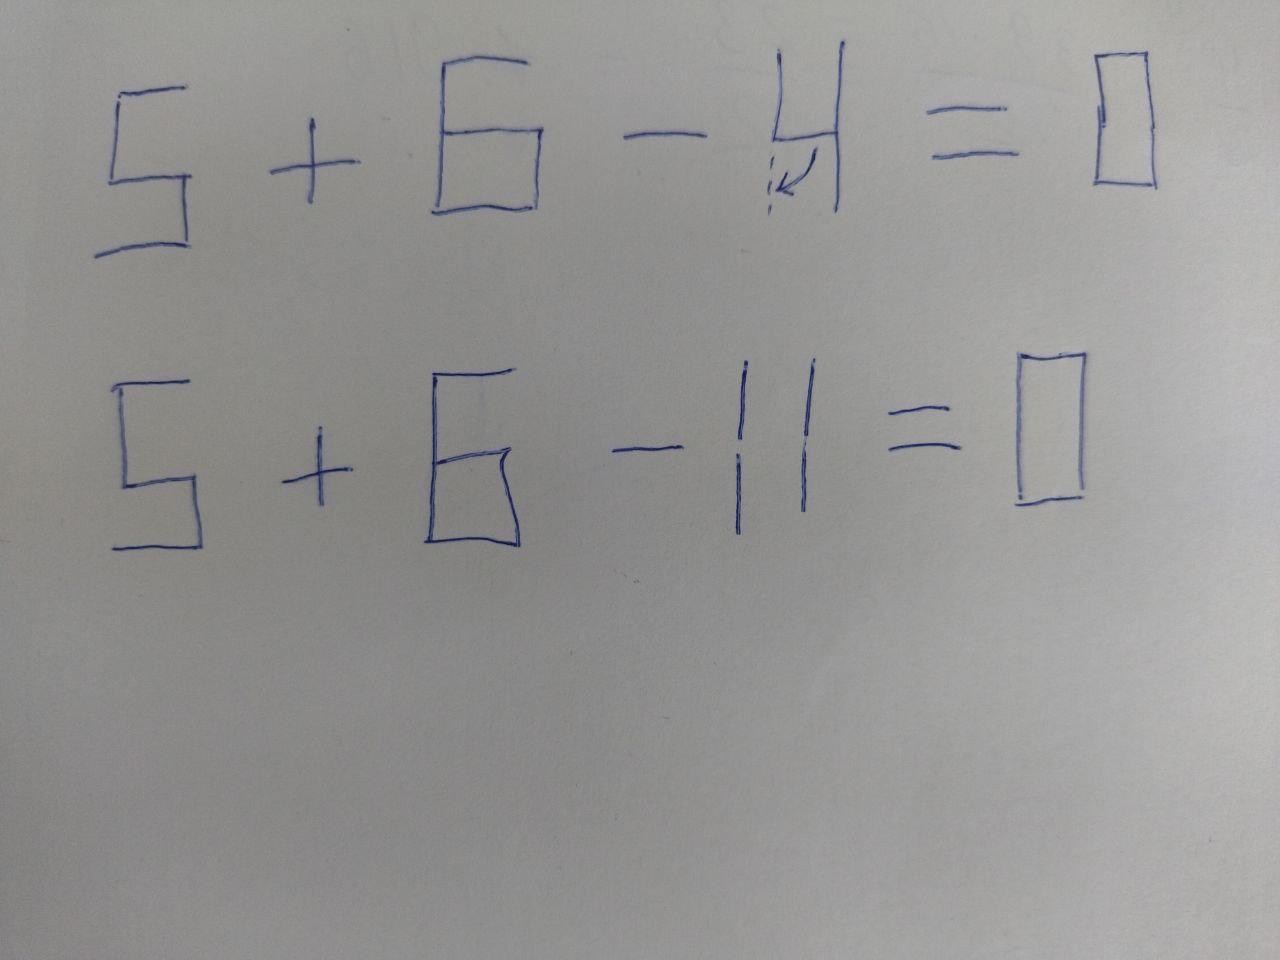 5 + 6 - 4 = 0
5 + 6 - 11 = 0